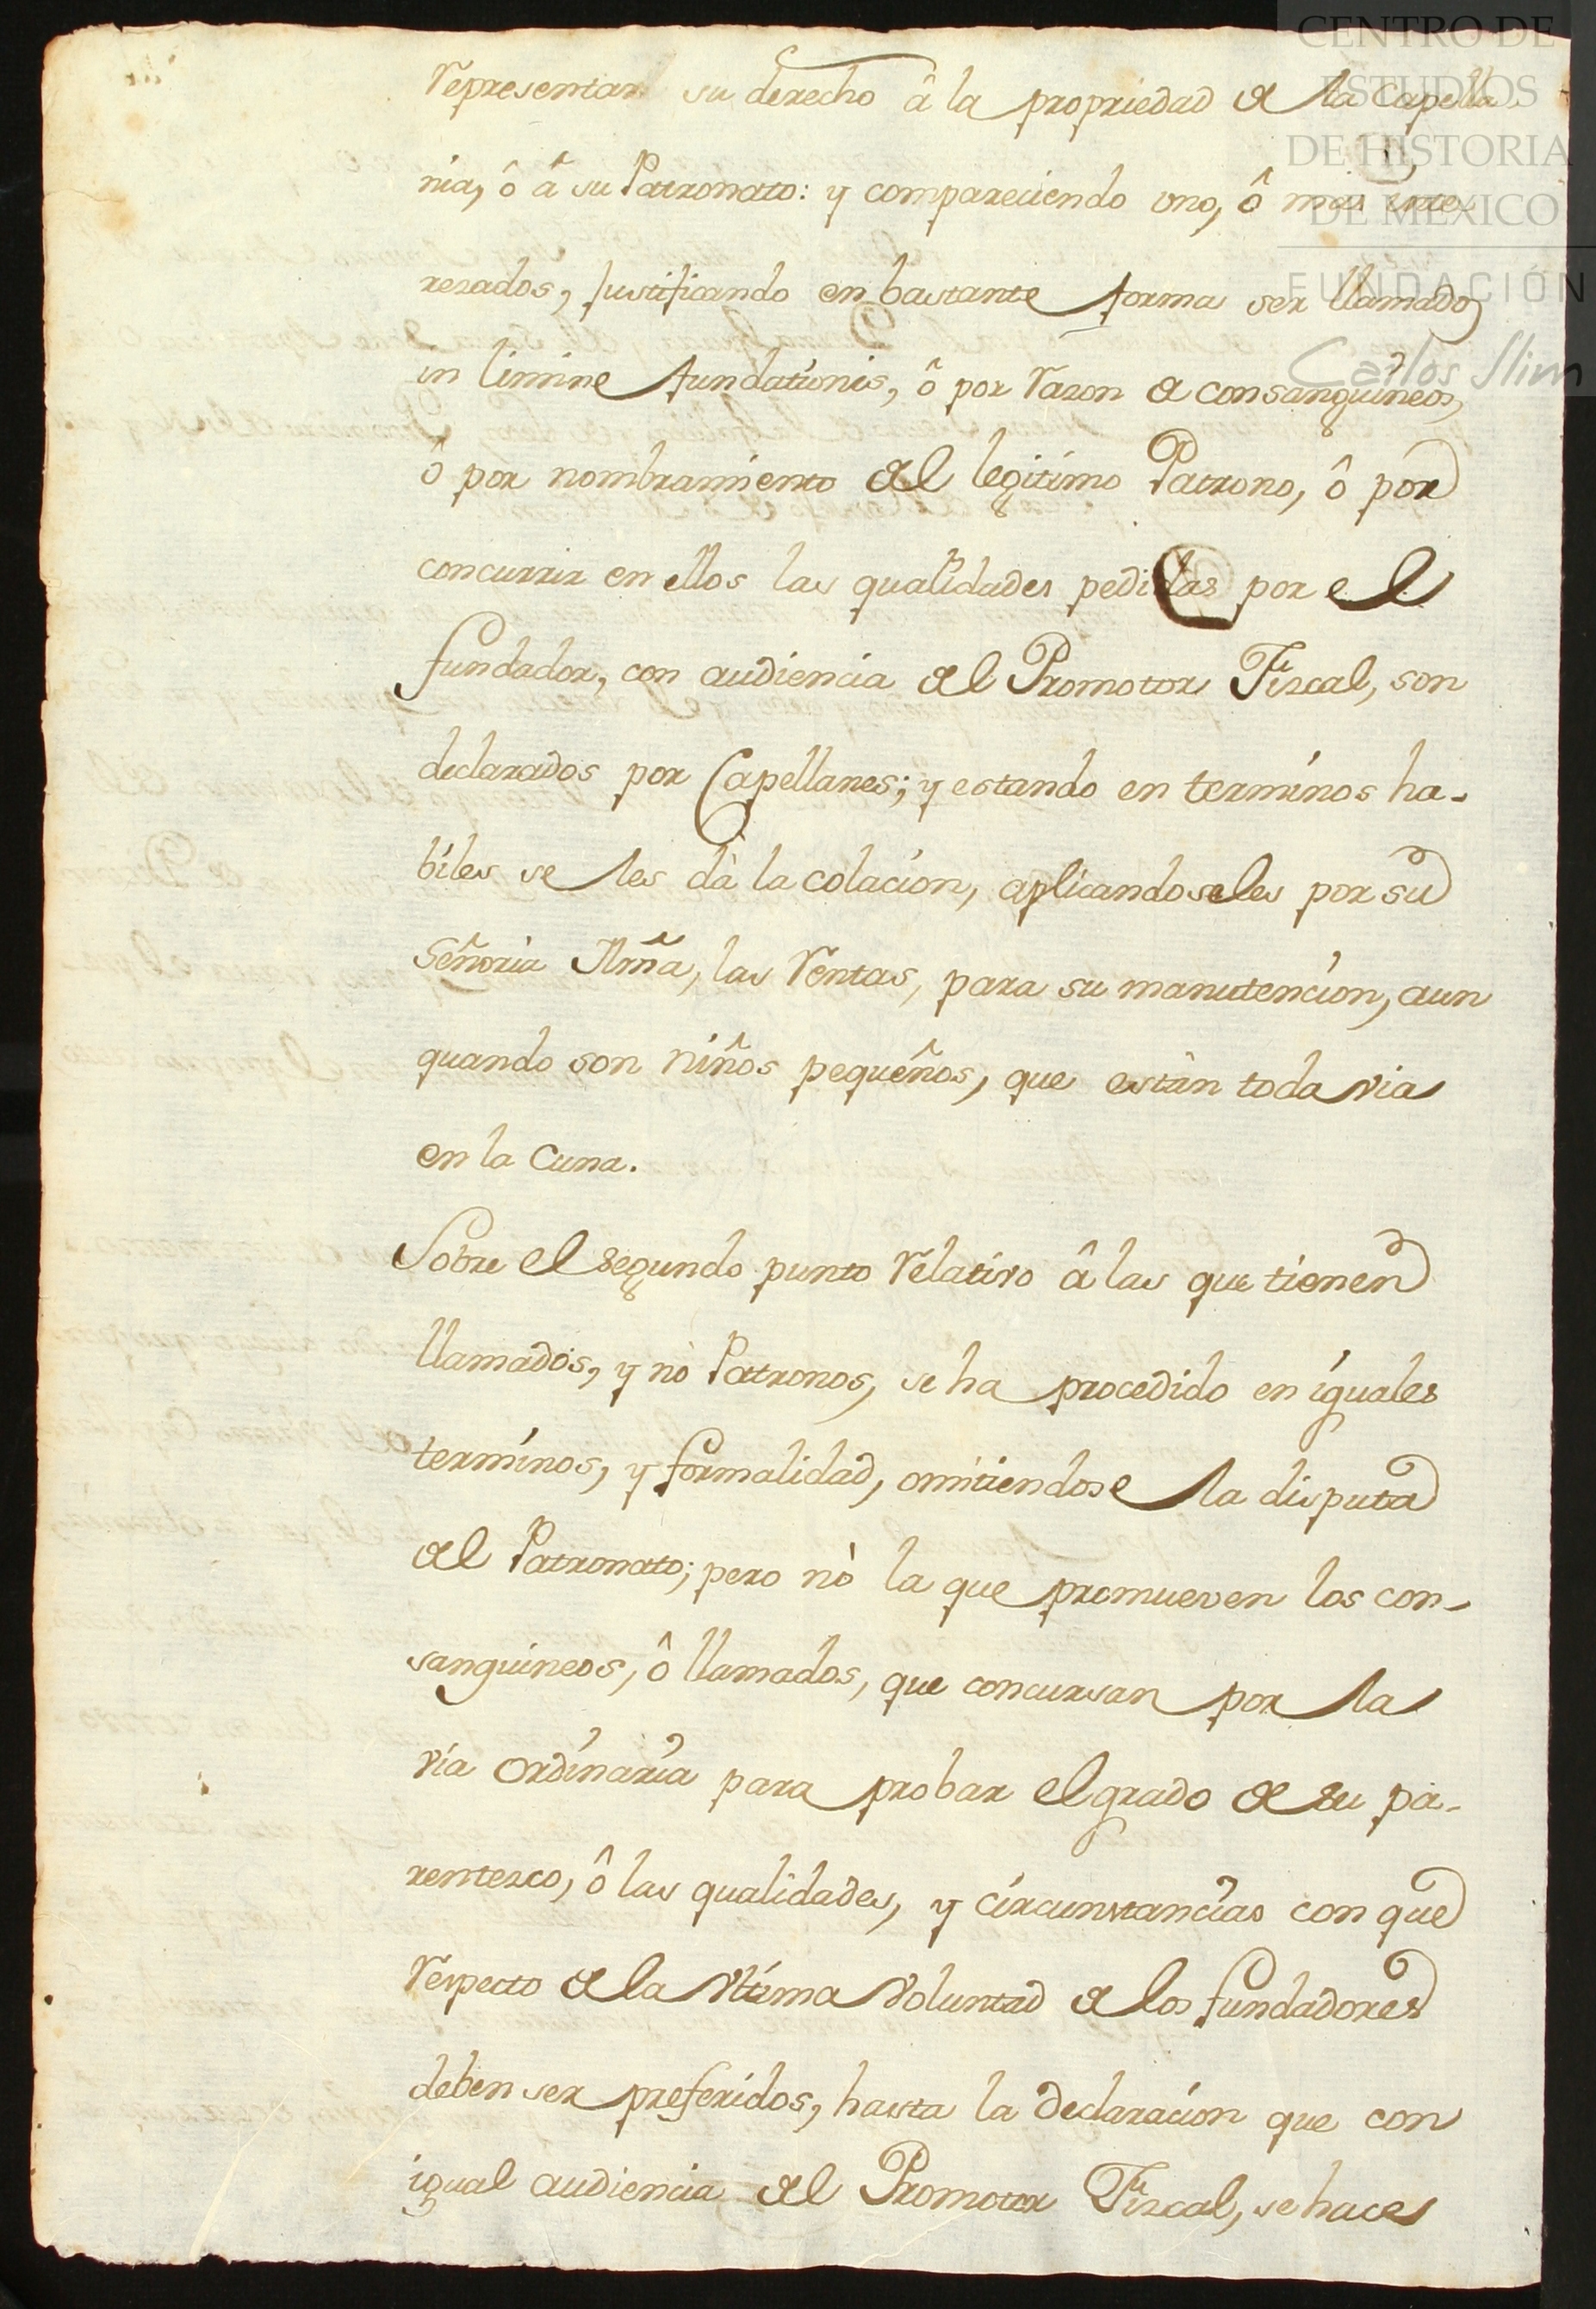 CENTRO DE
ESTUDIOS
DE HISTORIA
DE MÉXICO
FUNDACIÓN
Carlos Slim
representar su derecho â la propriedad de la Capella
nia, ô â su Patronato: y compareciendo uno, ô mas inte-
resados, Justificando en bastante forma ser llamados
in limine fundationis, ô por razon de consanguineos,
ô por nombramiento del legitimo Patrono, ô por
concurrir en ellos las qualidades pedidas por el
fundador, con audiencia del Promotor Fiscal, son
declarados por Capellanes; y estando en terminos ha-
biles se les dà la colacion, aplicandoseles por su
Señoria Ilmã, las Rentas, para su manutencion, aun
quando son niños pequeños, que estàn toda via
en la Cuna.
Sobre el segundo punto relativo â las que tienen
llamados, y nò Patronos, se ha procedido en iguales
terminos, y formalidad, omitiendose la disputa
del Patronato; pero nò la que promueven los con-
sanguineos, ô llamados, que concursan por la
via ordinaria para probar el grado de su pa-
rentesco, ô las qualidades, y circunstancias con que
respecto de la vltima voluntad de los fundadores
deben ser preferidos, hasta la declaracion que con
igual audiencia del Promotor Fiscal, se hace